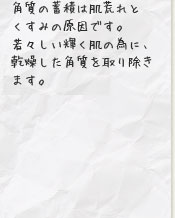 角質の蓄積は肌荒れと
くすみの原因です。
若々しい輝く肌の為に、
乾燥した角質を取り除き
ます。